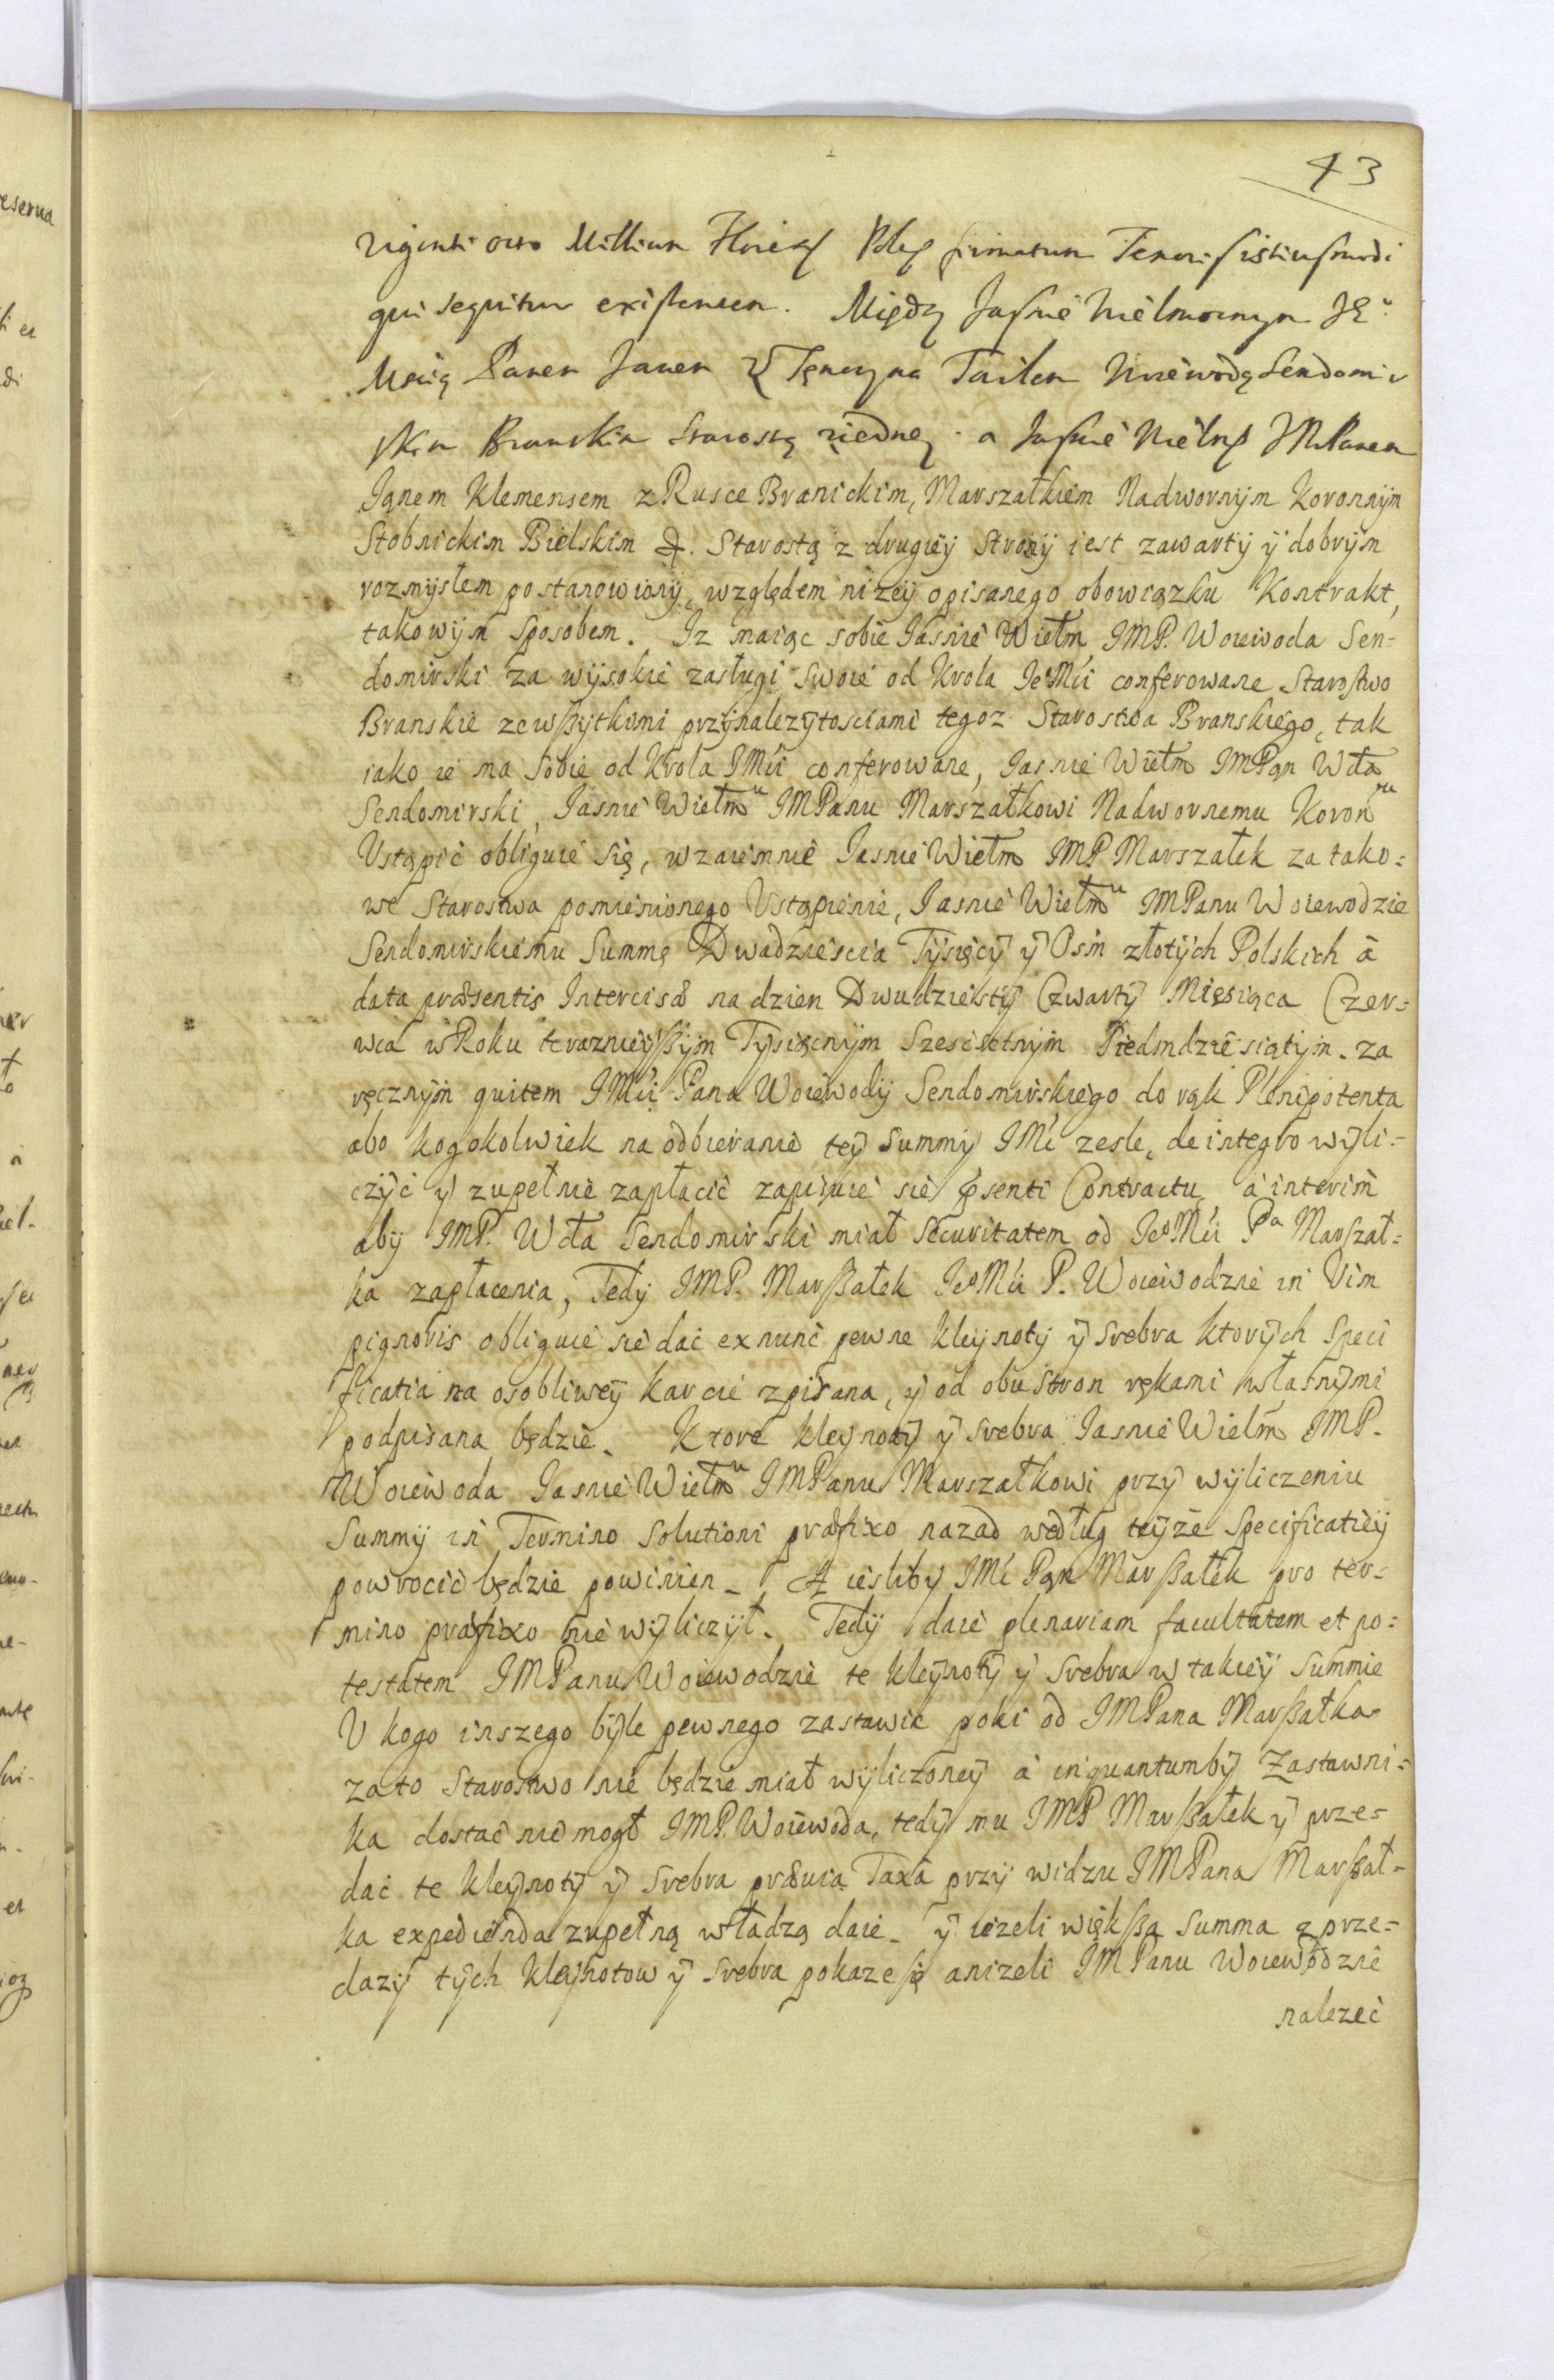 43
viginti octo Millium Floren Polon firmatum Tenoris istiusmodi
qui sequitur existentem. Między Jasnie Wielmoznym JE°
Mscią Panem Janem z Tęnczyna Woiewodą Sendomir
skim Branskim Starostą ziedney a Jasnie Wielmo JMPanem
Janem Klemensem z Rusce Branickim, Marszałkiem Nadwornym Koronnym
Stobnickim Bielskim &. Starostą z drugiey strony iest zawarty y dobrym
rozmysłem postanowiony, względem nizey opisanego obowiązku Kontrakt,
takowym sposobem. Iz maiąc sobie Jasnie Wielm IMP. Woiewoda Sen=
domirski za wysokie zasługi swoie od Krola Je°Mci conferowane Starostwo
Branskie zewszytkimi przynalezytosciami tegoz Starostwa Branskiego, tak
iako ie ma sobie od Krola IMci conferowane, Jasnie Wielm IMPan Wda
Sendomirski, Jasnie Wielmu IMPanu Marszałkowi Nadwornemu Koronnu
Vstąpić obliguie się, wzaiemnie Jasnie Wielm IMP Marszałek za tako=
we Starostwa pomienionego Vstąpienie, Jasnie Wielmu IMPanu Woiewodzie
Sendomirskiemu Summę Dwadziescia Tysięcy y Osm złotych Polskich à
data præsentis Intercisæ na dzien Dwudziesty Czwarty Miesiąca Czer=
wca w Roku teraznieyszym Tysiącnym Szescsetnym Piedmdziesiątym. za
ręcznym quitem IMci Pana Woiewody Sendomirskiego do rąk Plenipotenta
abo kogokolwiek na odbieranie tey Summy IMć zesle, de integro wyli=
czyć y zupełnie zapłacić zapisuie sie psenti Contractu, à interim
aby IMP. Wda Sendomirski miał Securitatem od Je°Mci Pa Marszał=
ka zapłacenia, Tedy IMP. Marszałek Je°Mci P. Woiewodzie in Vim
pignoris obliguie sie dać ex nunc pewne kleynoty y srebra ktorych speci
ficatia na osobliwey karcie zpisana, y od obu stron rękami własnymi
podpisana będzie. Ktore kleynoty y srebra Jasnie Wielm IMP.
Woiewoda Jasnie Wielmu IMPanu Marszałkowi przy wyliczeniu
Summy in Termino solutioni præfixo nazad według teyze specificatiey
powrocić będzie powinien. A iesliby IMć Pan Marszałek pro ter=
mino præfixo nie wyliczył. Tedy daie plenariam facultatem et po=
testatem IMPanu Woiewodzie te kleynoty y srebra w takiey summie
V kogo inszego byle pewnego zastawic poki od IMPana Marszałka
za to Starostwo nie będzie miał wyliczoney à inquantumby Zastawni=
ka dostać nie mogł IMP. Woiewoda, tedy mu IMP Marszałek y prze=
dać te kleynoty y srebra præuia Taxa przy widzu IMPana Marszał=
ka expedienda zupełną władzą daie. y iezeli większa Summa z prze=
dazy tych kleynotow y srebra pokaze się anizeli IMPanu Woiewodzie
nalezeć